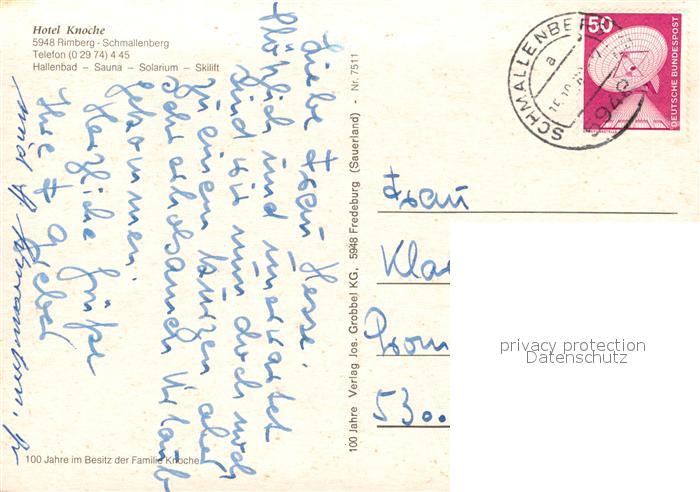 Hotel Knoche
5948 Rimberg - Schmallenberg
Telefon (0 29 74) 4 45
Hallenbad – Sauna – Solarium – Skilift
Liebe Frau Hesse,
plötzlich und unerwartet
sind wir nun doch noch
zu einem kurzen aber
sehr erholsamen Urlaub
gekommen.
Herzliche Grüße
Ihre
und
100 Jahre im Besitz der Familie Knoche
100 Jahre Verlag Jos. Grobbel KG, 5948 Fredeburg (Sauerland) - Nr. 7511
SCHMALLENBERG
a
5948
50
DEUTSCHE BUNDESPOST
Frau
Kla
Prom
5300
privacy protection
Datenschutz